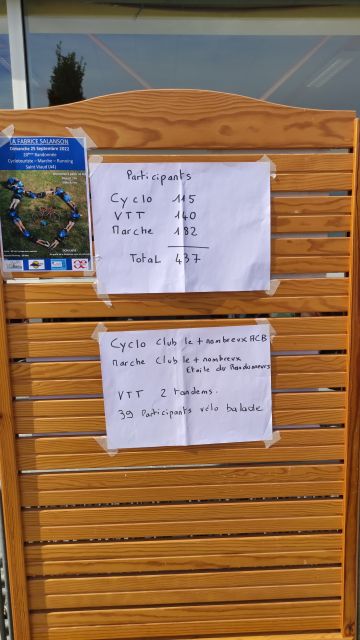 LA FABRICE SALANSON
Dimanche 25 Septembre 2022
20ème Randonnée
Cyclotouriste - Marche - Running
Saint Viaud (44)
Participants
Cyclo 115
VTT 140
Marche 182
Total 437
Cyclo Club le + nombreux ACB
Marche Club le + nombreux
Etoile du Randonneurs
VTT 2 tandems.
39 Participants vélo balade